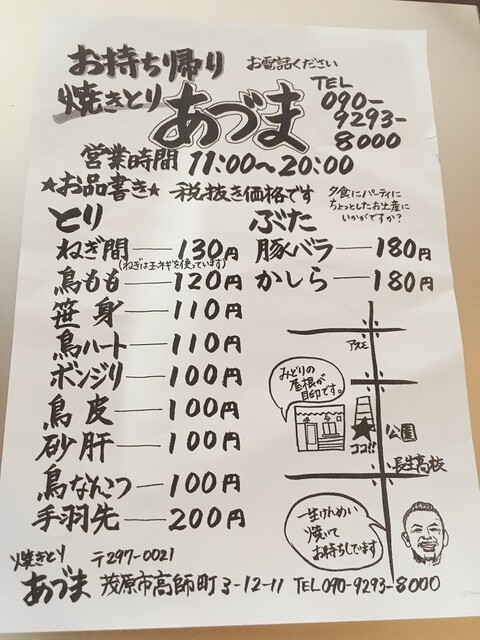 お持ち帰り お電話ください
焼きとり あづま TEL 090-9293-8000
営業時間 11:00〜20:00
★お品書き★ 税抜き価格です
夕食にパーティに
ちょっとしたお土産に
いかがですか?
とり
ねぎ間 130円
(ねぎは玉ネギを使っています)
鳥もも 120円
笹身 110円
鳥ハート 110円
ボンジリ 100円
鳥皮 100円
砂肝 100円
鳥なんこつ 100円
手羽先 200円
ぶた
豚バラ 180円
かしら 180円
アスモ
みどりの
屋根が
目印です。
ココ!!
公園
長生高校
一生けんめい
焼いて
お待ちしています
焼きとり 〒297-0021
あづま 茂原市高師町3-12-11 TEL090-9293-8000